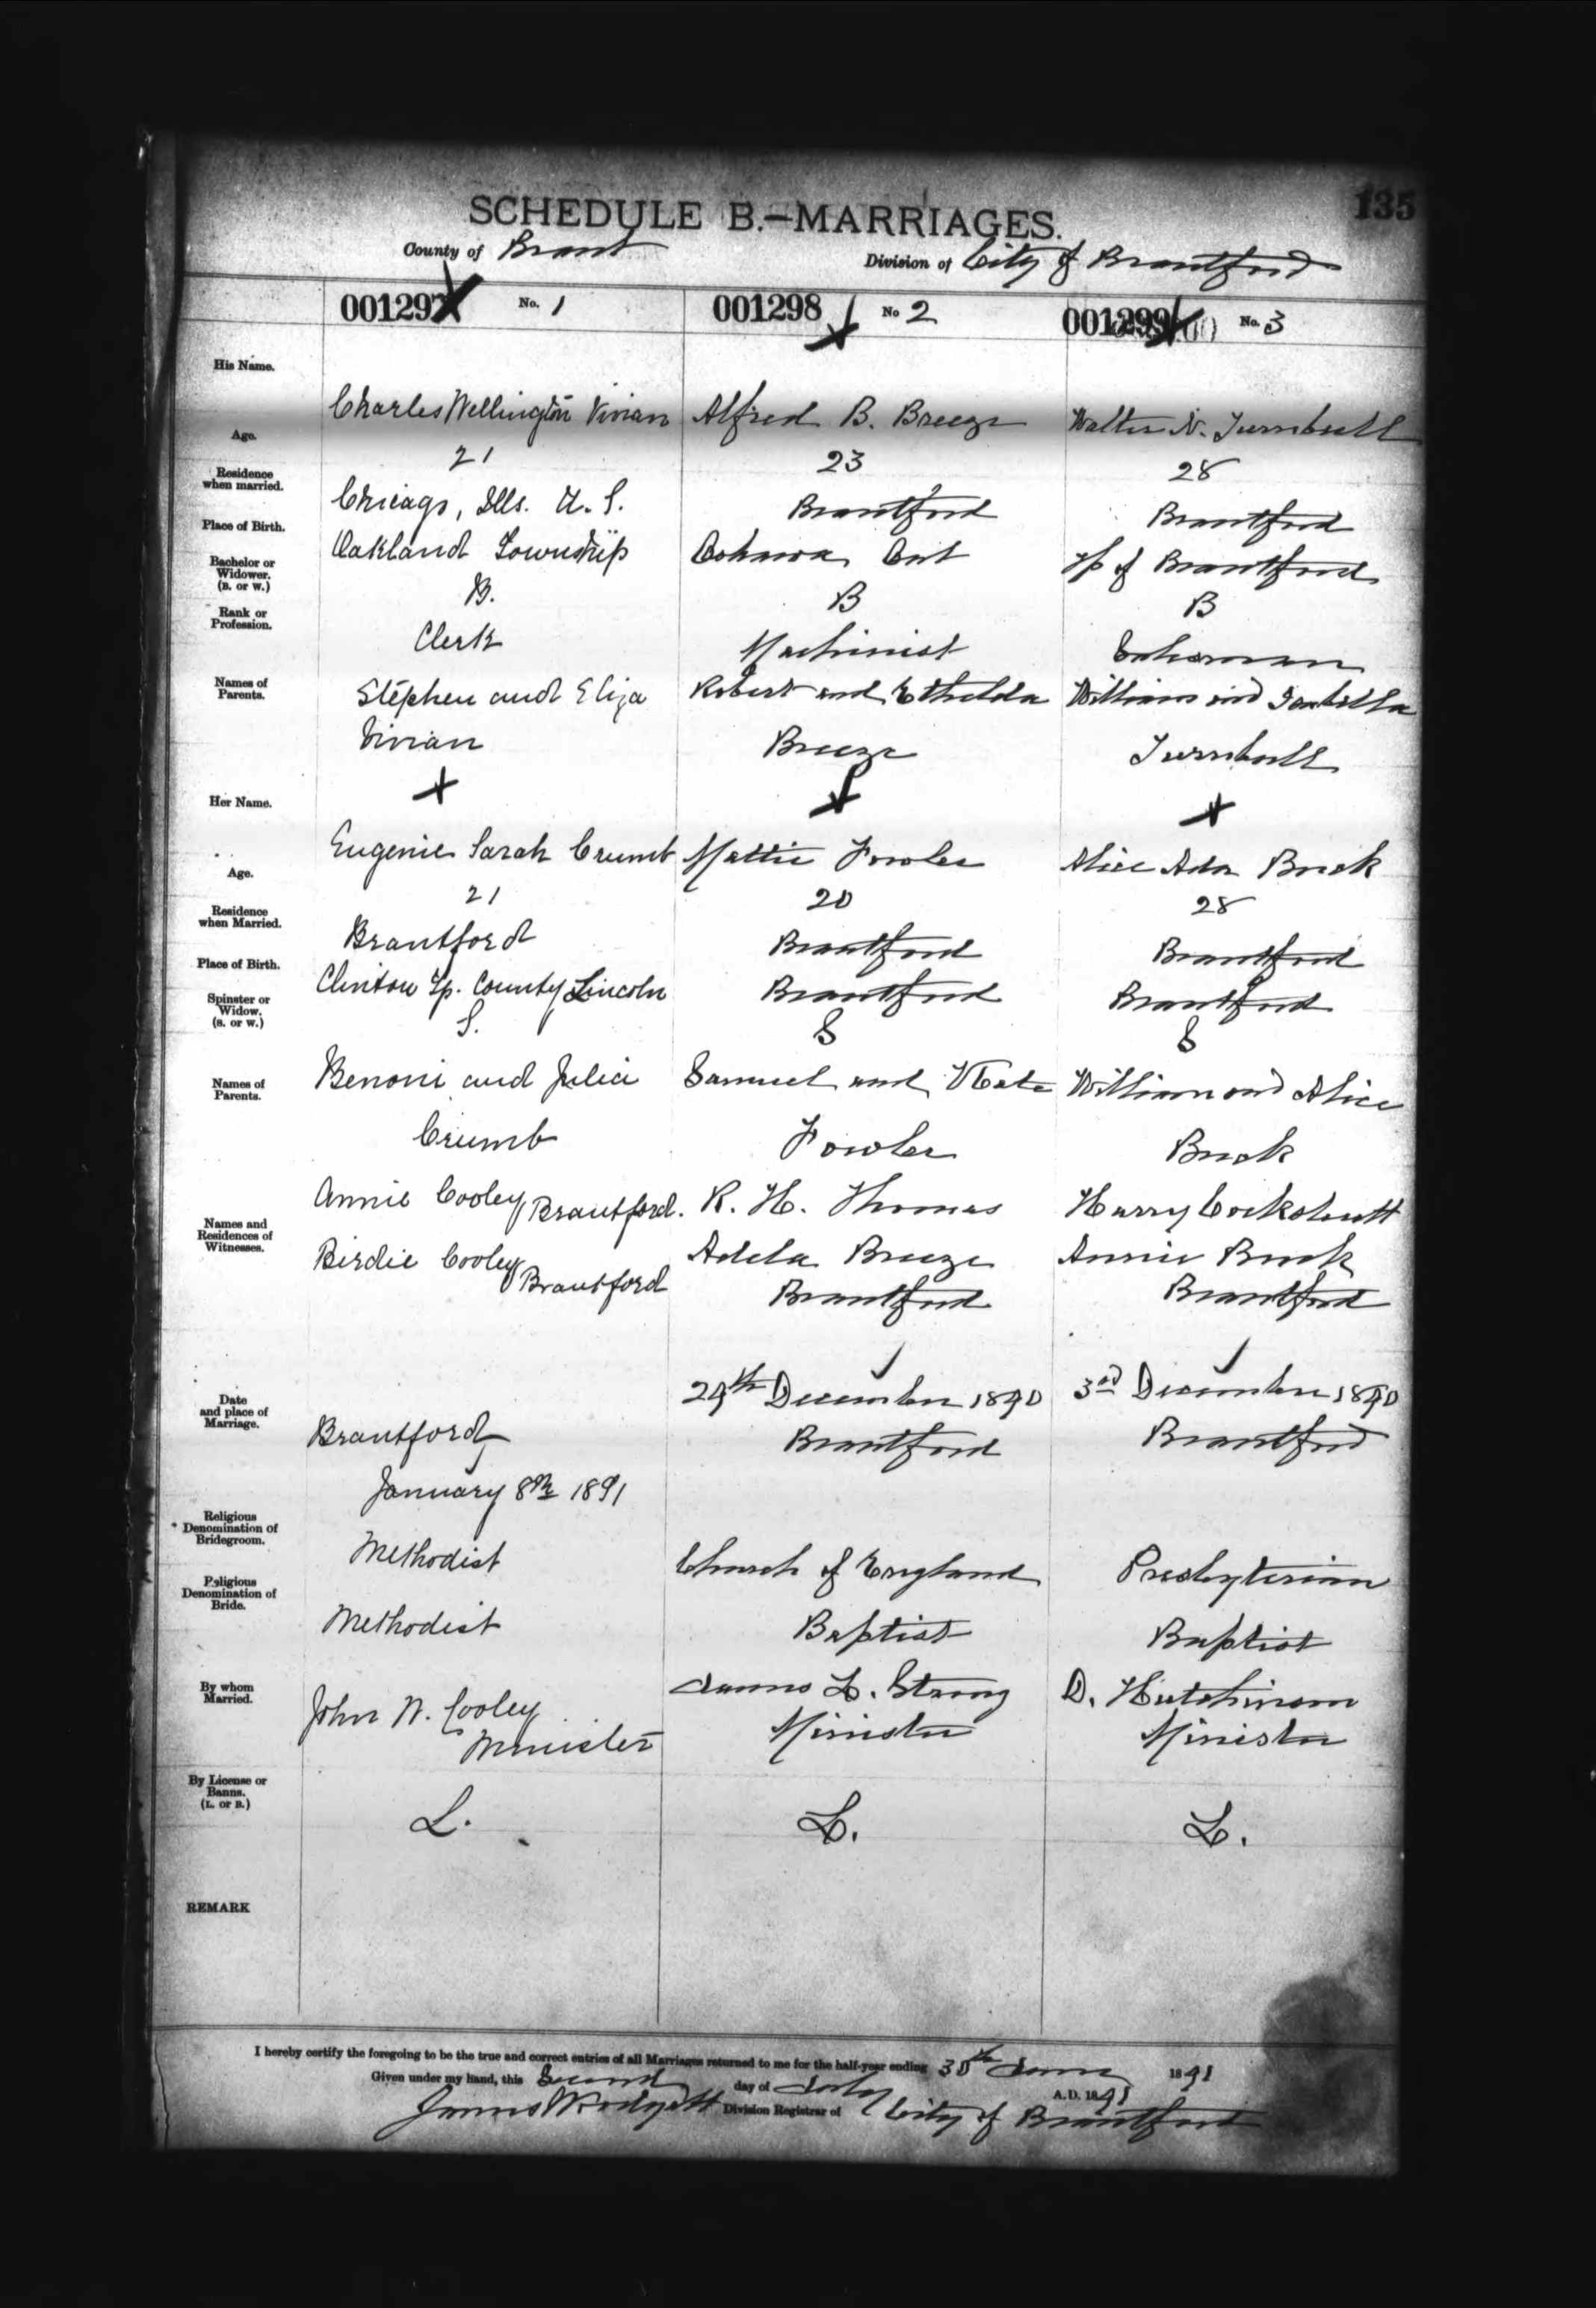 135
SCHEDULE B.—MARRIAGES.
County of Brant Division of City of Brantford
001297 No. 1 001298 No 2 001299 No. 3
His Name.
Charles Wellington Vivian Alfred B. Breeze Walter N. Turnbull
Age.
21 23 28
Residence when married.
Chicago, Ills. U.S. Brantford Brantford
Place of Birth.
Oakland Township Oshawa Ont Tp of Brantford
Bachelor or Widower. (B. or W.)
B. B B
Rank or Profession.
Clerk Machinist
Names of Parents.
Stephen and Eliza Robert and Ethelda William and Isabella
Vivian Breeze Turnbull
Her Name.
Eugenie Sarah Crumb Mattie Fowler Alice Ada Buck
Age.
21 20 28
Residence when Married.
Brantford Brantford Brantford
Place of Birth.
Clinton Tp. County Lincoln Brantford Brantford
Spinster or Widow. (S. or W.)
S. S S
Names of Parents.
Benoni and Julia Samuel and Kate William and Alice
Crumb Fowler Buck
Names and Residences of Witnesses.
Annie Cooley Brantford. R. H. Thomas Harry Cockshutt
Birdie Cooley Brantford Adela Breeze Annie Buck
Brantford Brantford
Date and place of Marriage.
29th December 1890 3rd December 1890
Brantford Brantford Brantford
January 8th 1891
Religious Denomination of Bridegroom.
Methodist Church of England Presbyterian
Religious Denomination of Bride.
Methodist Baptist Baptist
By whom Married.
John W. Cooley James L. Strong D. Hutchinson
Minister Minister Minister
By License or Banns. (L. or B.)
L. L. L.
REMARK
I hereby certify the foregoing to be the true and correct entries of all Marriages returned to me for the half-year ending 30th June 1891
Given under my hand, this Second day of July A.D. 1891
James Woodyatt Division Registrar of City of Brantford